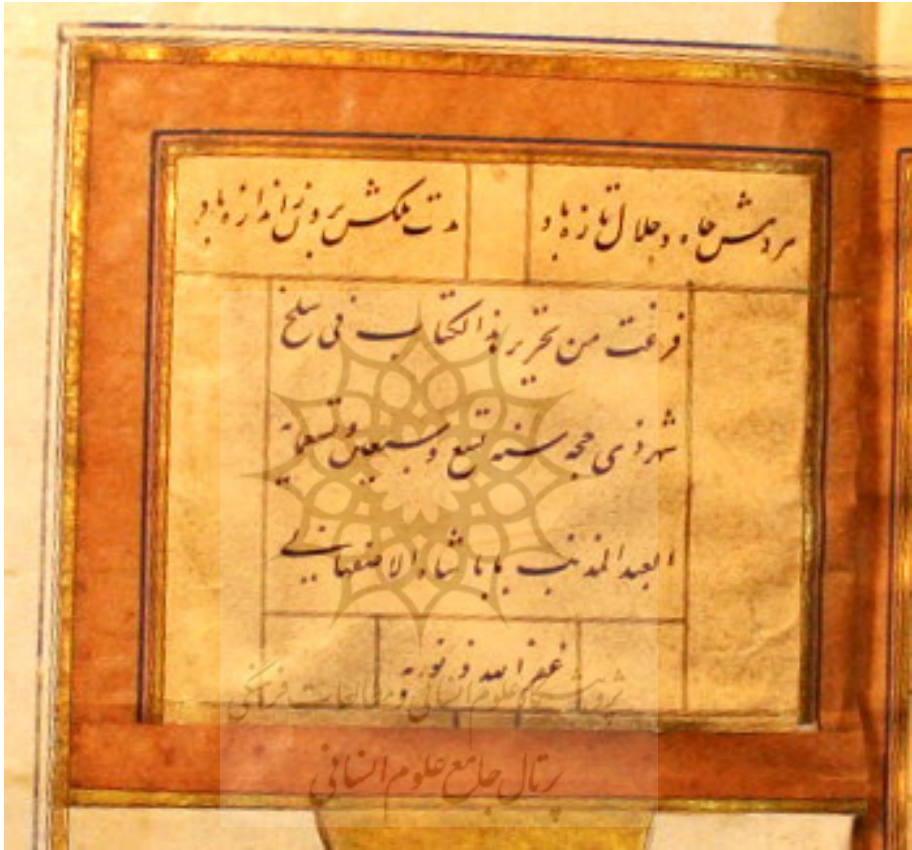 هر دمش جاه و جلال تازه باد
مدت ملکش برون ز اندازه باد
فرغت من تحریر هذا الکتاب فی سلخ
شهر ذی حجه سنه تسع و سبعین و تسعمایة
العبد المذنب بابا شاه الاصفهانی
غفر الله ذنوبه
پژوهشگاه علوم انسانی و مطالعات فرهنگی
پرتال جامع علوم انسانی